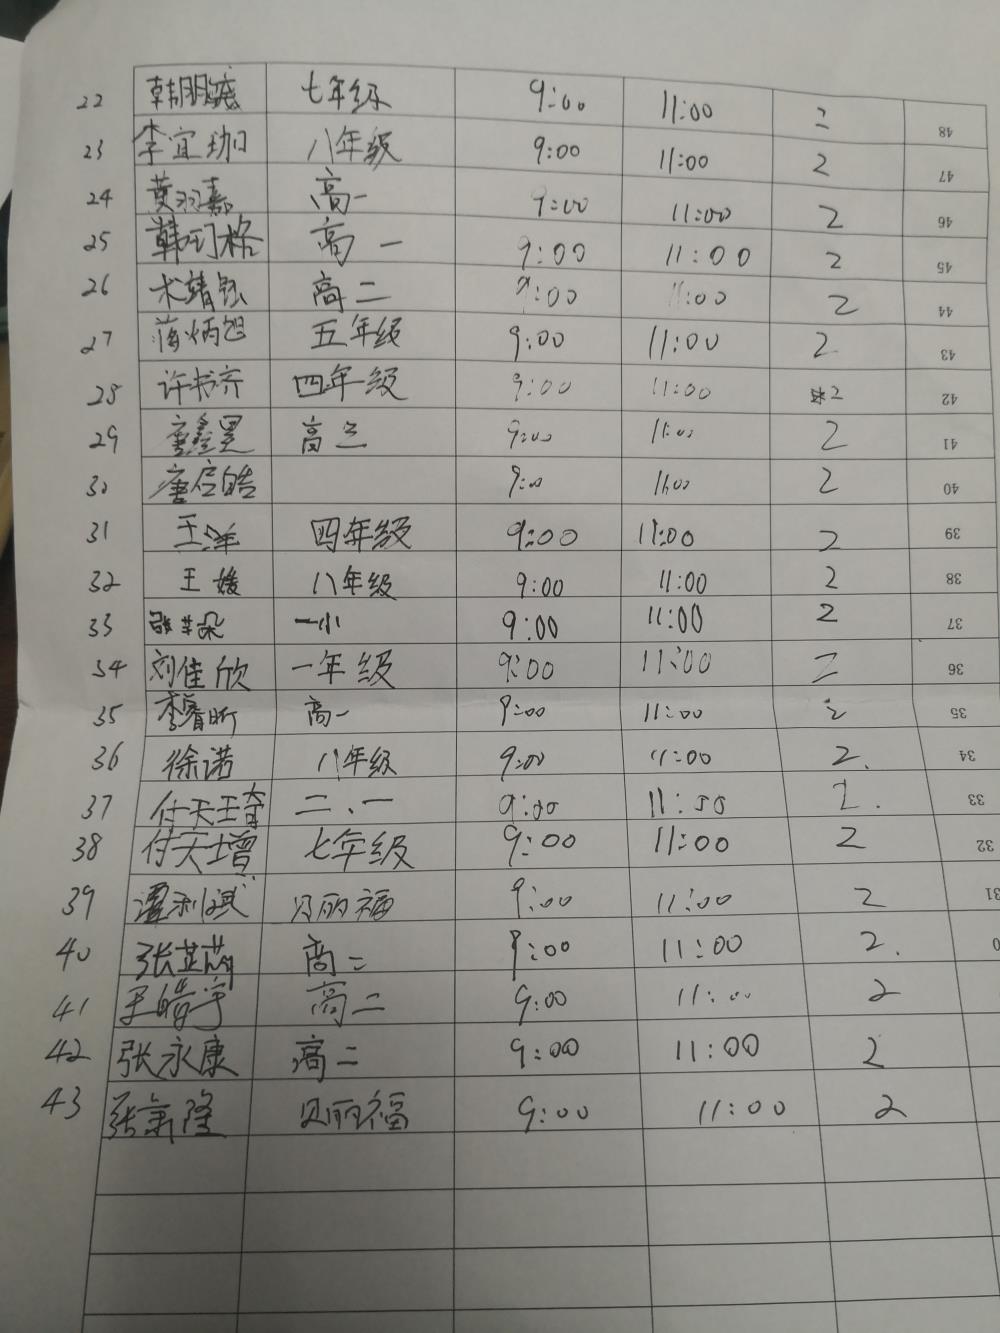 22 韩明 七年级 9:00 11:00 2 48
23 李宜珈 八年级 9:00 11:00 2 47
24 黄羽嘉 高一 9:00 11:00 2 46
25 韩珂格 高一 9:00 11:00 2 45
26 靖 高二 9:00 11:00 2 44
27 蒋炳旭 五年级 9:00 11:00 2 43
28 许书齐 四年级 9:00 11:00 2 42
29 唐鑫 高三 9:00 11:00 2 41
30 唐启皓 9:00 11:00 2 40
31 王洋 四年级 9:00 11:00 2 39
32 王媛 八年级 9:00 11:00 2 38
33 张芊朵 一小 9:00 11:00 2 37
34 刘佳欣 一年级 9:00 11:00 2 36
35 李睿昕 高一 9:00 11:00 2 35
36 徐诺 八年级 9:00 11:00 2. 34
37 付天琦 二、一 9:00 11:00 2. 33
38 付天增 七年级 9:00 11:00 2 32
39 贝丽福 9:00 11:00 2 31
40 张芷菡 高二 9:00 11:00 2. 0
41 王皓宇 高二 9:00 11:00 2
42 张永康 高二 9:00 11:00 2
43 张景隆 贝丽福 9:00 11:00 2